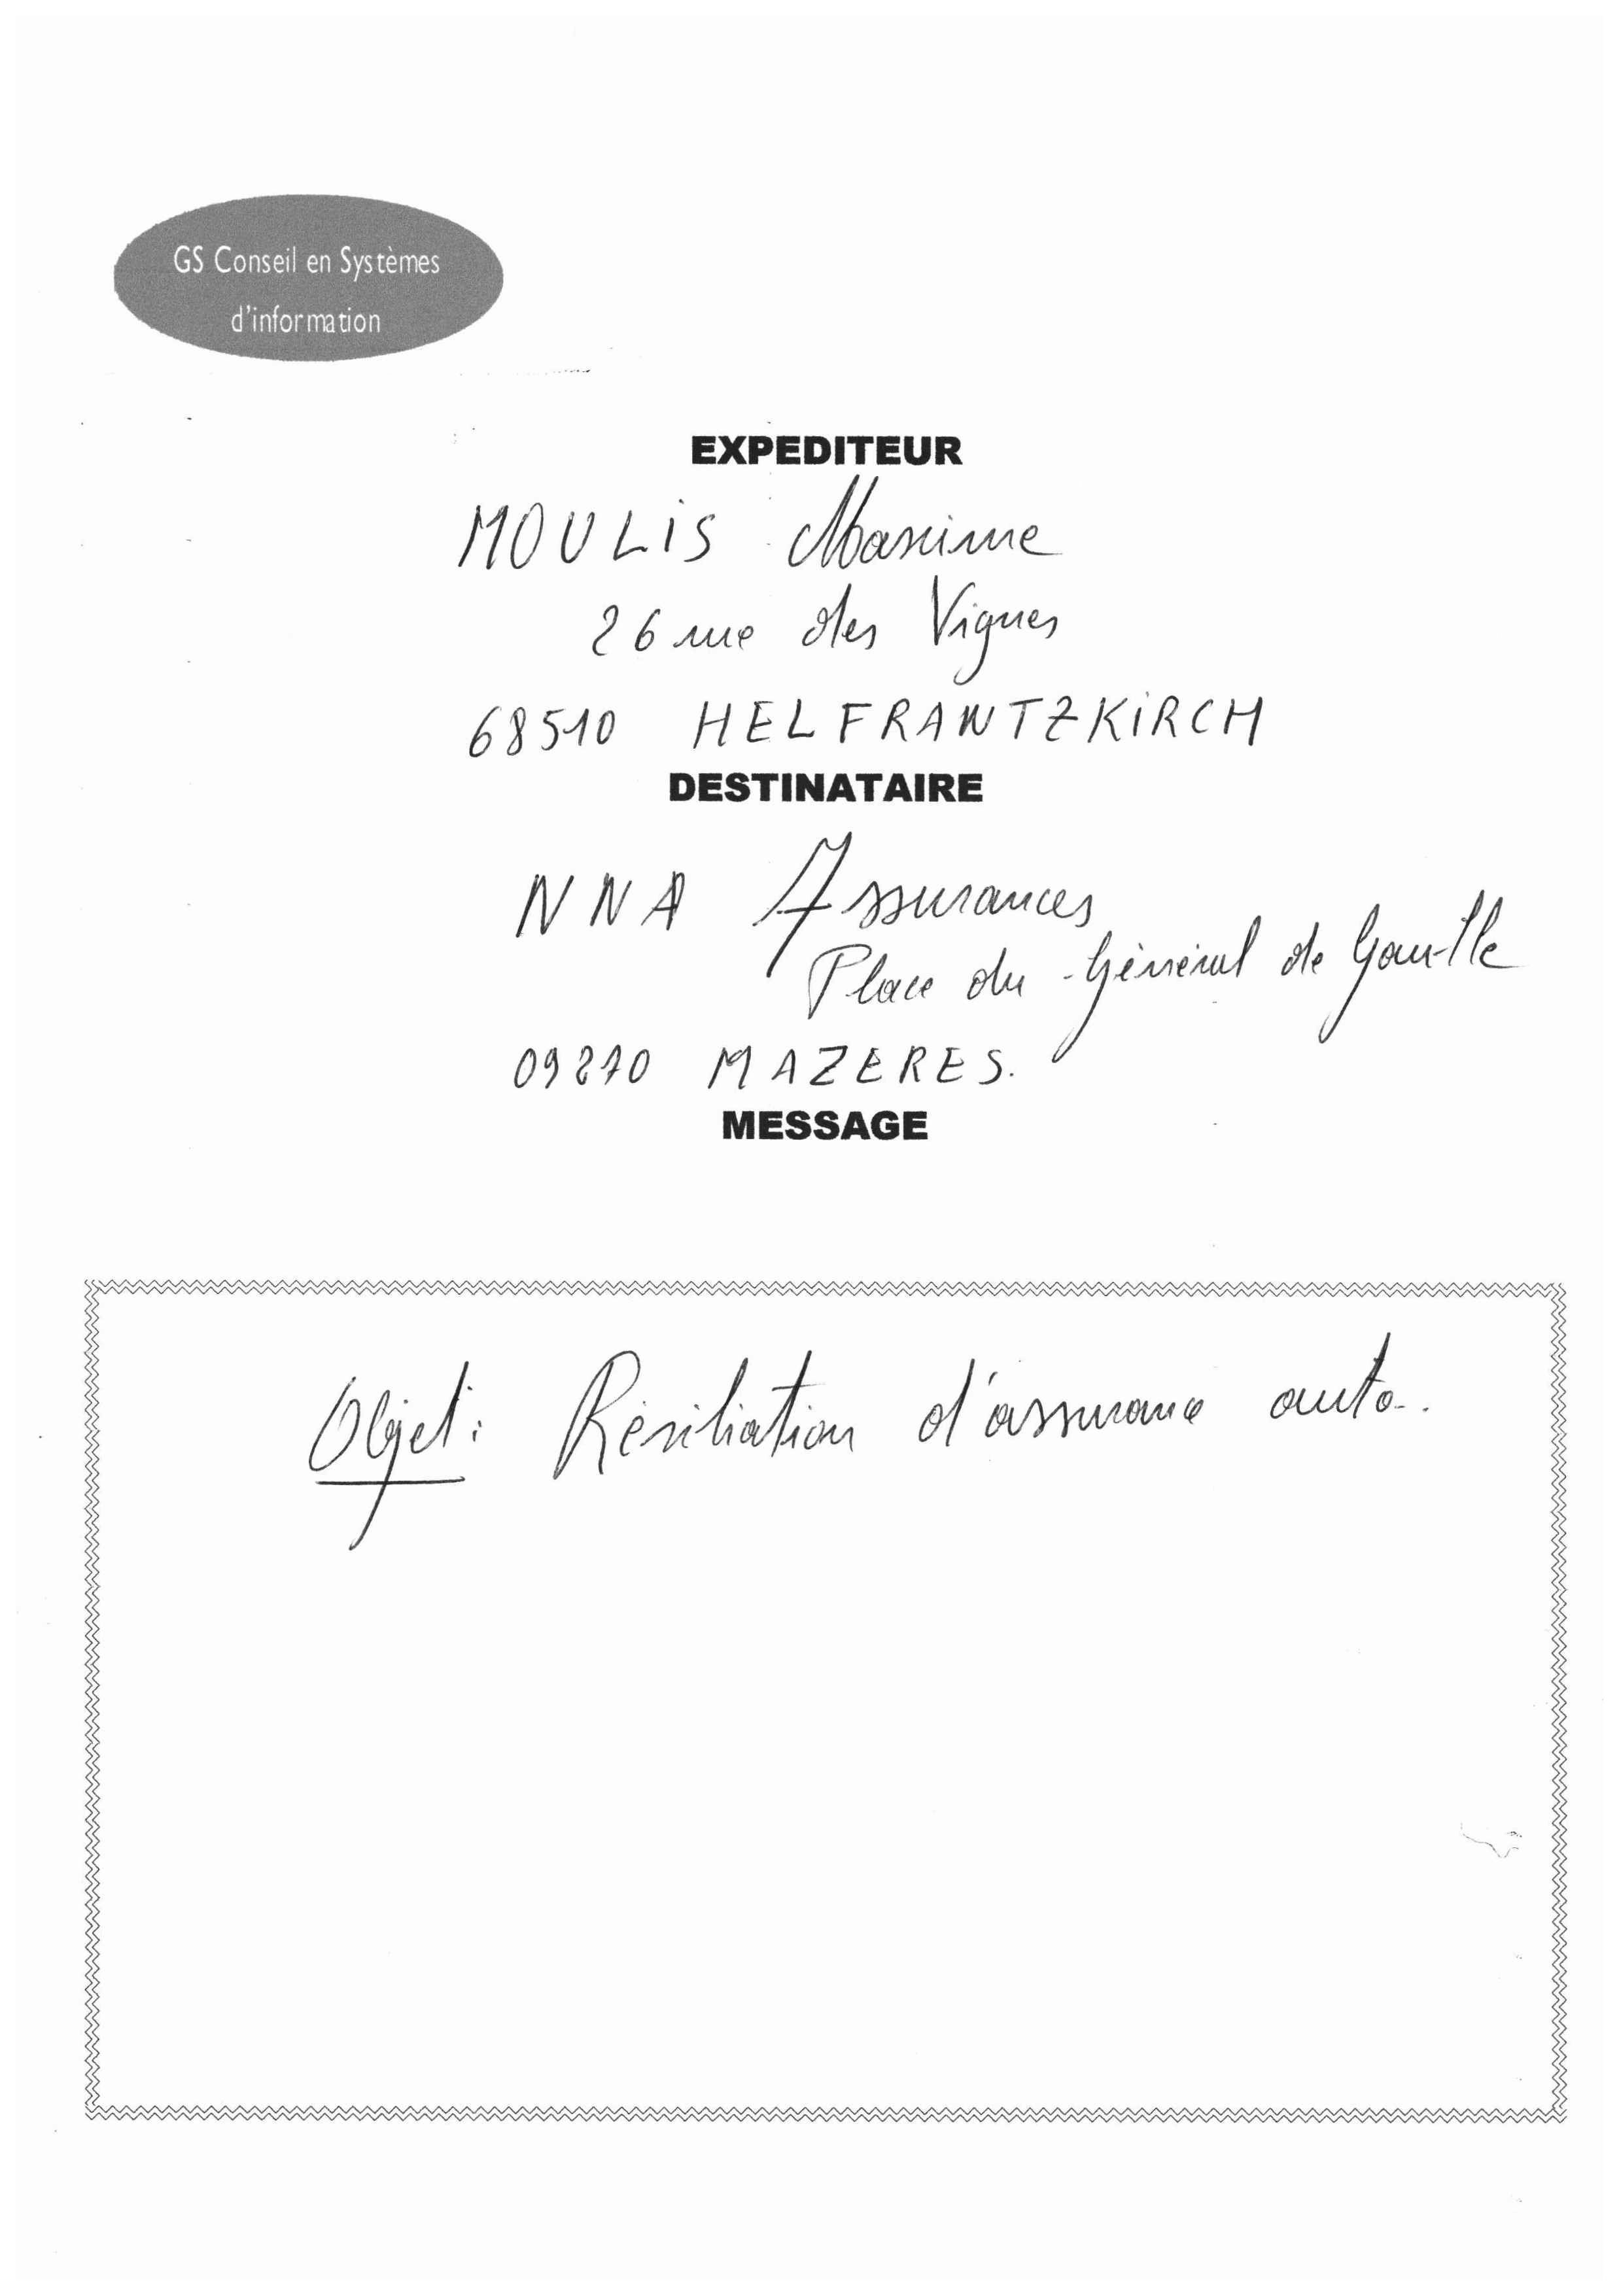 GS Conseil en Systèmes
d'information
EXPEDITEUR
MOULIS Maxime
26 rue des Vignes
68510 HELFRANTZKIRCH
DESTINATAIRE
NNA Assurances
Place du Général de Gaulle
09270 MAZERES.
MESSAGE
Objet : Résiliation d'assurance auto.